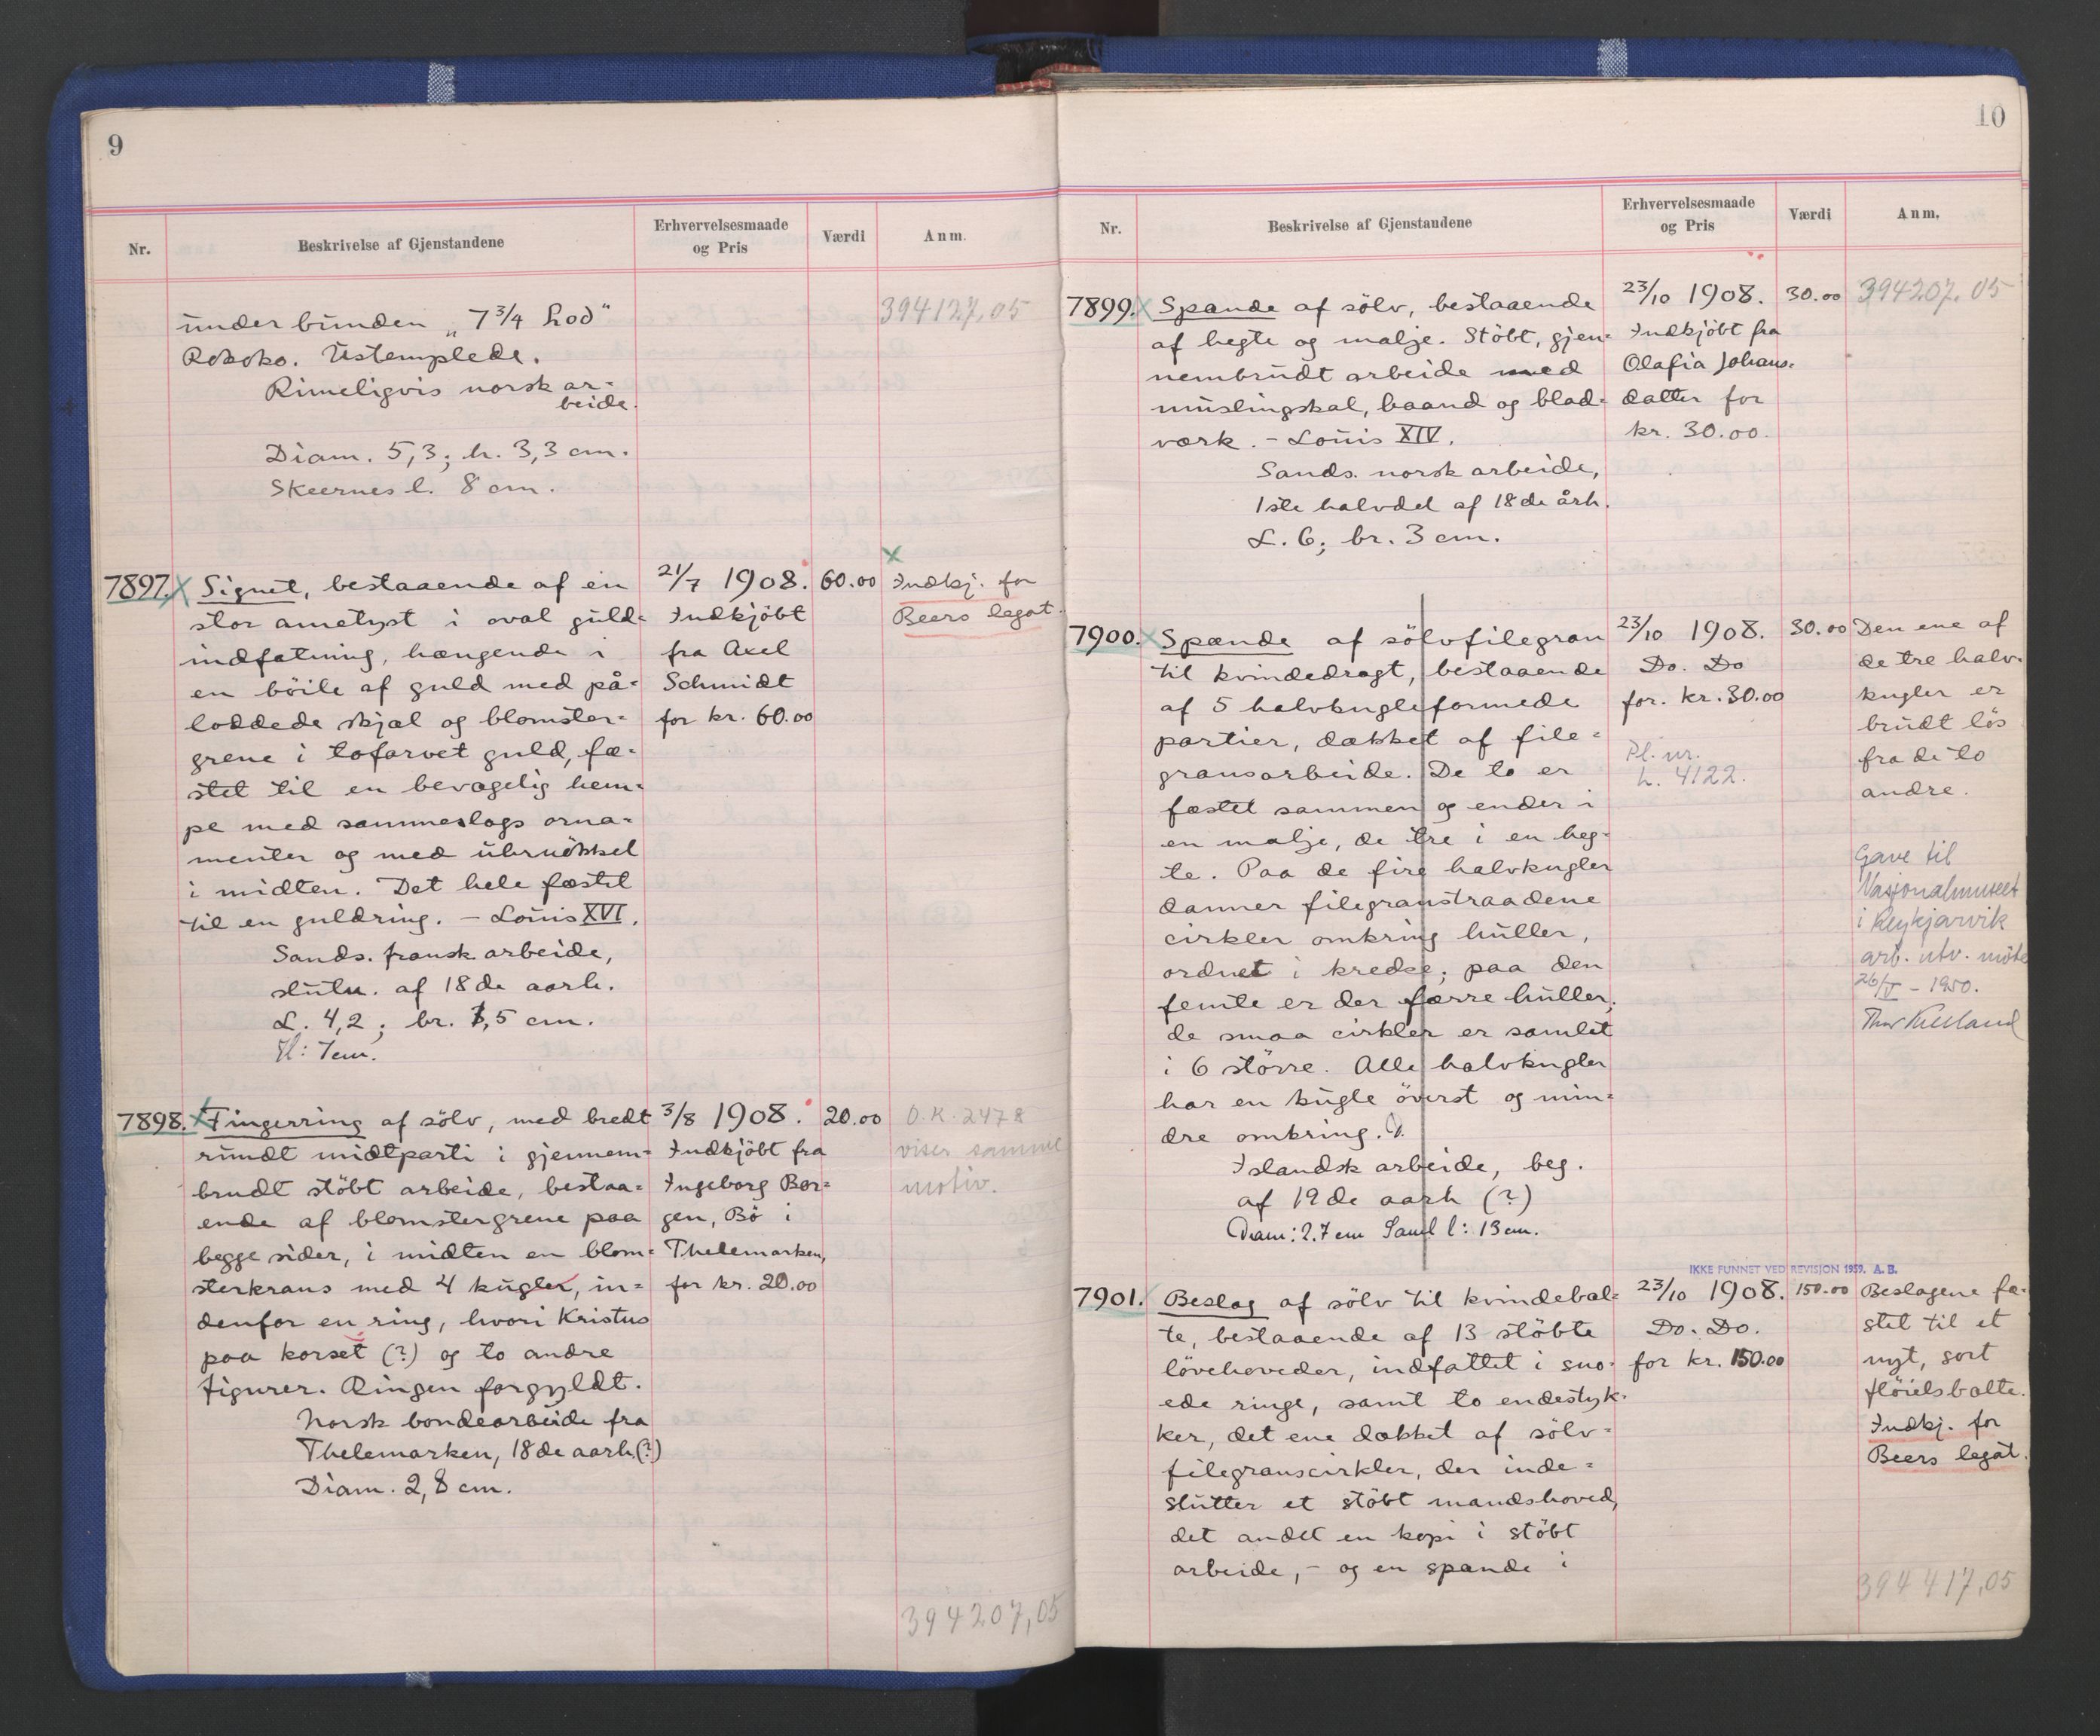 9
Nr.
Beskrivelse af Gjenstandene
Erhvervelsesmaade
og Pris
Værdi
Anm.
under bunden „7 3/4 Lod"
Rokoko. Ustemplede.
Rimeligvis norsk ar-
beide.
Diam. 5,3; h. 3,3 cm.
Skeernes l. 8 cm.
394127,05
7897. x Signet, bestaaende af en
stor ametyst i oval guld-
indfatning, hængende i
en böile af guld med på-
loddede skjæl og blomster-
grene i tofarvet guld, fæ-
stet til en bevægelig hem-
pe med sammeslags orna-
menter og med uhrnökkel
i midten. Det hele fæstet
til en guldring. – Louis XVI.
Sands. fransk arbeide,
slutn. af 18de aarh.
L. 4,2; br. 3,5 cm.
Hl: 7 cm.
21/7 1908.
Indkjöbt
fra Axel
Schmidt
for kr. 60.00
60.00
x
Indkj. for
Beers legat.
7898. x Fingerring af sölv, med bredt
rundt midtparti i gjennem-
brudt stöbt arbeide, bestaa-
ende af blomstergrene paa
begge sider, i midten en blom-
sterkrans med 4 kugler, in-
denfor en ring, hvori Kristus
paa korset (?) og to andre
figurer. Ringen forgyldt.
Norsk bondearbeide fra
Thelemarken, 18de aarh.(?)
Diam. 2,8 cm.
3/8 1908.
Indkjöbt fra
Ingeborg Bor-
gen, Bö i
Thelemarken,
for kr. 20.00
20.00
O.K. 2478
viser samme
motiv.
394207,05
10
Nr.
Beskrivelse af Gjenstandene
Erhvervelsesmaade
og Pris
Værdi
Anm.
7899. x Spænde af sölv, bestaaende
af hegte og malje. Stöbt, gjen-
nembrudt arbeide med
muslingskal, baand og blad-
værk. – Louis XIV.
Sands. norsk arbeide,
1ste halvdel af 18de årh.
L. 6; br. 3 cm.
23/10 1908.
Indkjöbt fra
Olafia Johans-
datter for
kr. 30.00.
30.00
394207,05
7900. x Spænde af sölvfilegran
til kvindedragt, bestaaende
af 5 halvkugleformede
partier, dækket af file-
gransarbeide. De to er
fæstet sammen og ender i
en malje, de tre i en heg-
te. Paa de fire halvkugler
danner filegranstraadene
cirkler omkring huller,
ordnet i kredse; paa den
femte er der færre huller;
de smaa cirkler er samlet
i 6 större. Alle halvkugler
har en kugle överst og min-
dre omkring.
Islandsk arbeide, beg.
af 19de aarh (?)
Diam: 2.7 cm Saml l: 13 cm.
23/10 1908.
Do. Do
for. kr. 30.00
Pl. nr.
L. 4122.
30.00
Den ene af
de tre halv-
kugler er
brudt lös
fra de to
andre.
Gave til
Nasjonalmuseet
i Reykjarvik
arb. utv. möte
26/V – 1950.
Thor Kielland
IKKE FUNNET VED REVISJON 1959. A. B.
7901. x Beslag af sölv til kvindebæl-
te, bestaaende af 13 stöbte
lövehoveder, indfattet i sno-
ede ringe, samt to endestyk-
ker, det ene dækket af sölv-
filegranscirkler, der inde-
slutter et stöbt mandshoved,
det andet en kopi i stöbt
arbeide, – og en spænde i
23/10 1908.
Do. Do.
for kr. 150.00
150.00
Beslagene fæ-
stet til et
nyt, sort
flöielsbælte.
Indkj. for
Beers legat.
394417,05